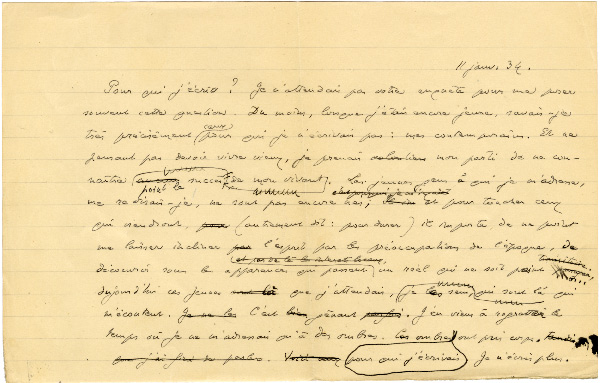 11 janv. 34.
Pour qui j'écris ? Je n'attendais pas votre enquête pour me poser
souvent cette question. Du moins, lorsque j'étais encore jeune, savais-je
très précisément pour qui je n'écrivais pas : mes contemporains. Et ne
pensant pas devoir vivre vieux, je prenais mon parti de ne con-
naître point le succès de mon vivant. Les jeunes gens à qui je m'adresse,
me redisais-je, ne sont pas encore nés ; et pour toucher ceux
qui viendront, (autrement dit : pour durer) il importe de ne point
me laisser incliner l'esprit par les préoccupations de l'époque, de
découvrir sous les apparences qui passent un réel qui ne soit point
aujourd'hui ces jeunes que j'attendais, je les vois ; qui sont là qui
m'écoutent. C'est gênant. J'en viens à regretter le
temps où je ne m'adressais qu'à des ombres. Ces ombres ont pris corps.
pour qui j'écrivais Je n'écris plus.